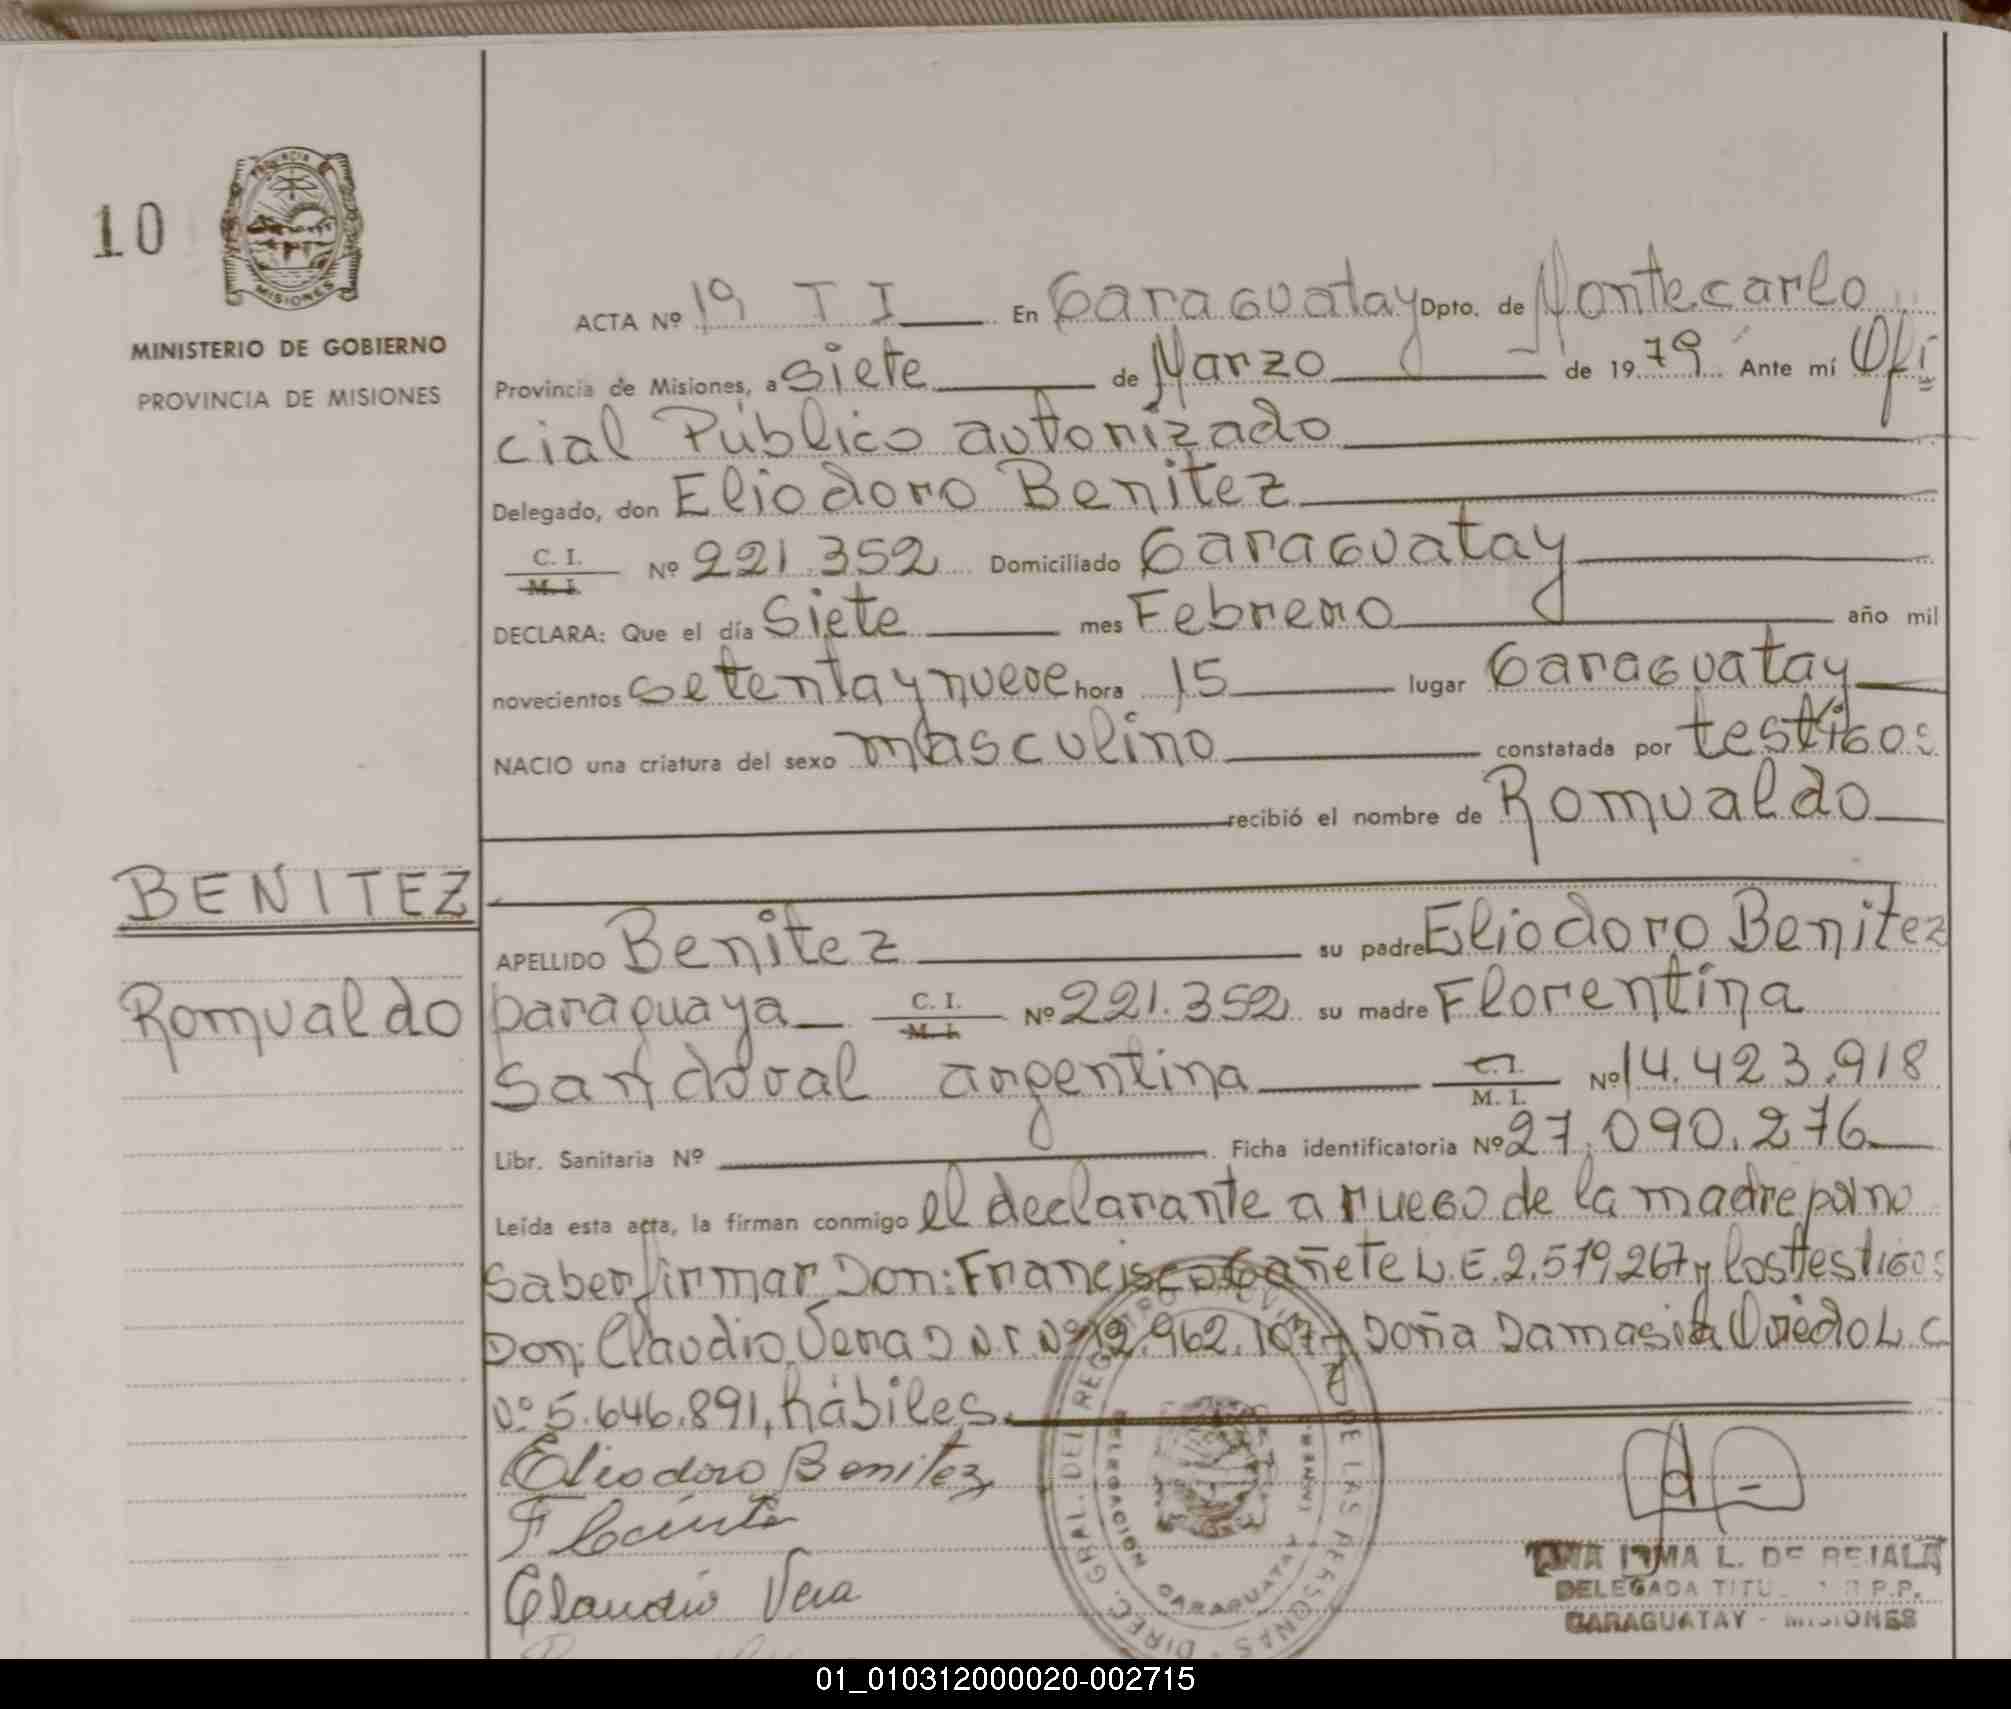 10
PROVINCIA DE
MISIONES
MINISTERIO DE GOBIERNO
PROVINCIA DE MISIONES
BENITEZ
Romualdo
ACTA Nº 19 T I En Caraguatay Dpto. de Montecarlo
Provincia de Misiones, a siete de Marzo de 1979 Ante mí Ofi
cial Público autorizado
Delegado, don Eliodoro Benitez
C. I. M. I. Nº 221.352 Domiciliado Caraguatay
DECLARA: Que el día Siete mes Febrero año mil
novecientos setenta y nueve hora 15 lugar Caraguatay
NACIO una criatura del sexo masculino constatada por testigos
recibió el nombre de Romualdo
APELLIDO Benitez su padre Eliodoro Benitez
paraguaya C. I. M. I. Nº 221.352 su madre Florentina
Sandoval argentina C. I. M. I. Nº 14.423.918
Libr. Sanitaria Nº Ficha identificatoria Nº 27.090.276
Leída esta acta, la firman conmigo el declarante a ruego de la madre por no
saber firmar Don: Francisco Cañete L.E. 2.579.267 y los testigos
Don: Claudio Vera D.N.I. Nº 12.962.107 y Doña Damasia Oviedo L.C
Nº 5.646.891, hábiles.
Eliodoro Benitez
Claudio Vera
DIREC. GRAL. DEL REGISTRO DE LAS PERSONAS
DELEGACION CARAGUATAY
L. DE BEJALA
DELEGADA TITU P.P.
CARAGUATAY - MISIONES
01_010312000020-002715